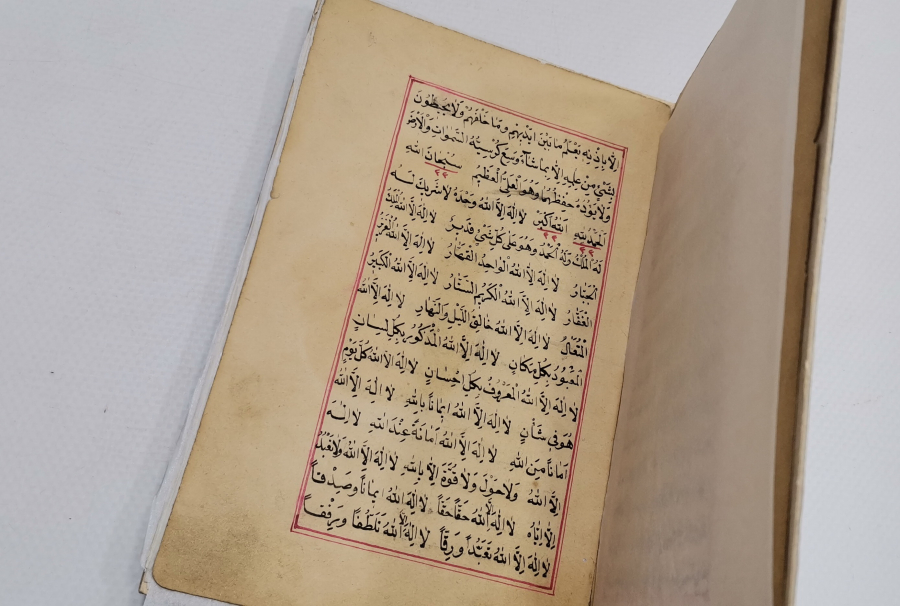 اِلَّا بِاِذْنِهِ يَعْلَمُ مَا بَيْنَ اَيْدِيْهِمْ وَمَا خَلْفَهُمْ وَلَا يُحِيْطُوْنَ
بِشَيْءٍ مِنْ عِلْمِهِ اِلَّا بِمَا شَاءَ وَسِعَ كُرْسِيُّهُ السَّمٰوَاتِ وَالْاَرْضَ
وَلَا يَؤُدُهُ حِفْظُهُمَا وَهُوَ الْعَلِيُّ الْعَظِيْمُ سُبْحَانَ اللهِ ٣٣
اَلْحَمْدُ لِلّٰهِ ٣٣ اَللهُ اَكْبَرُ ٣٣ لَا اِلٰهَ اِلَّا اللهُ وَحْدَهُ لَا شَرِيْكَ لَهُ
لَهُ الْمُلْكُ وَلَهُ الْحَمْدُ وَهُوَ عَلٰى كُلِّ شَيْءٍ قَدِيْرٌ لَا اِلٰهَ اِلَّا اللهُ الْمَلِكُ
الْجَبَّارُ لَا اِلٰهَ اِلَّا اللهُ الْوَاحِدُ الْقَهَّارُ لَا اِلٰهَ اِلَّا اللهُ الْعَزِيْزُ
الْغَفَّارُ لَا اِلٰهَ اِلَّا اللهُ الْكَرِيْمُ السَّتَّارُ لَا اِلٰهَ اِلَّا اللهُ الْكَبِيْرُ
الْمُتَعَالُ لَا اِلٰهَ اِلَّا اللهُ خَالِقُ اللَّيْلِ وَالنَّهَارِ لَا اِلٰهَ اِلَّا اللهُ
الْمَعْبُوْدُ بِكُلِّ مَكَانٍ لَا اِلٰهَ اِلَّا اللهُ الْمَذْكُوْرُ بِكُلِّ لِسَانٍ
لَا اِلٰهَ اِلَّا اللهُ الْمَعْرُوْفُ بِكُلِّ اِحْسَانٍ لَا اِلٰهَ اِلَّا اللهُ كُلَّ يَوْمٍ
هُوَ فِي شَأْنٍ لَا اِلٰهَ اِلَّا اللهُ اِيْمَانًا بِاللهِ لَا اِلٰهَ اِلَّا اللهُ
اَمَانًا مِنَ اللهِ لَا اِلٰهَ اِلَّا اللهُ اَمَانَةً عِنْدَ اللهِ لَا اِلٰهَ
اِلَّا اللهُ وَلَا حَوْلَ وَلَا قُوَّةَ اِلَّا بِاللهِ لَا اِلٰهَ اِلَّا اللهُ وَلَا نَعْبُدُ
اِلَّا اِيَّاهُ لَا اِلٰهَ اِلَّا اللهُ حَقًّا حَقًّا لَا اِلٰهَ اِلَّا اللهُ اِيْمَانًا وَصِدْقًا
لَا اِلٰهَ اِلَّا اللهُ تَعَبُّدًا وَرِقًّا لَا اِلٰهَ اِلَّا اللهُ تَلَطُّفًا وَرِفْقًا